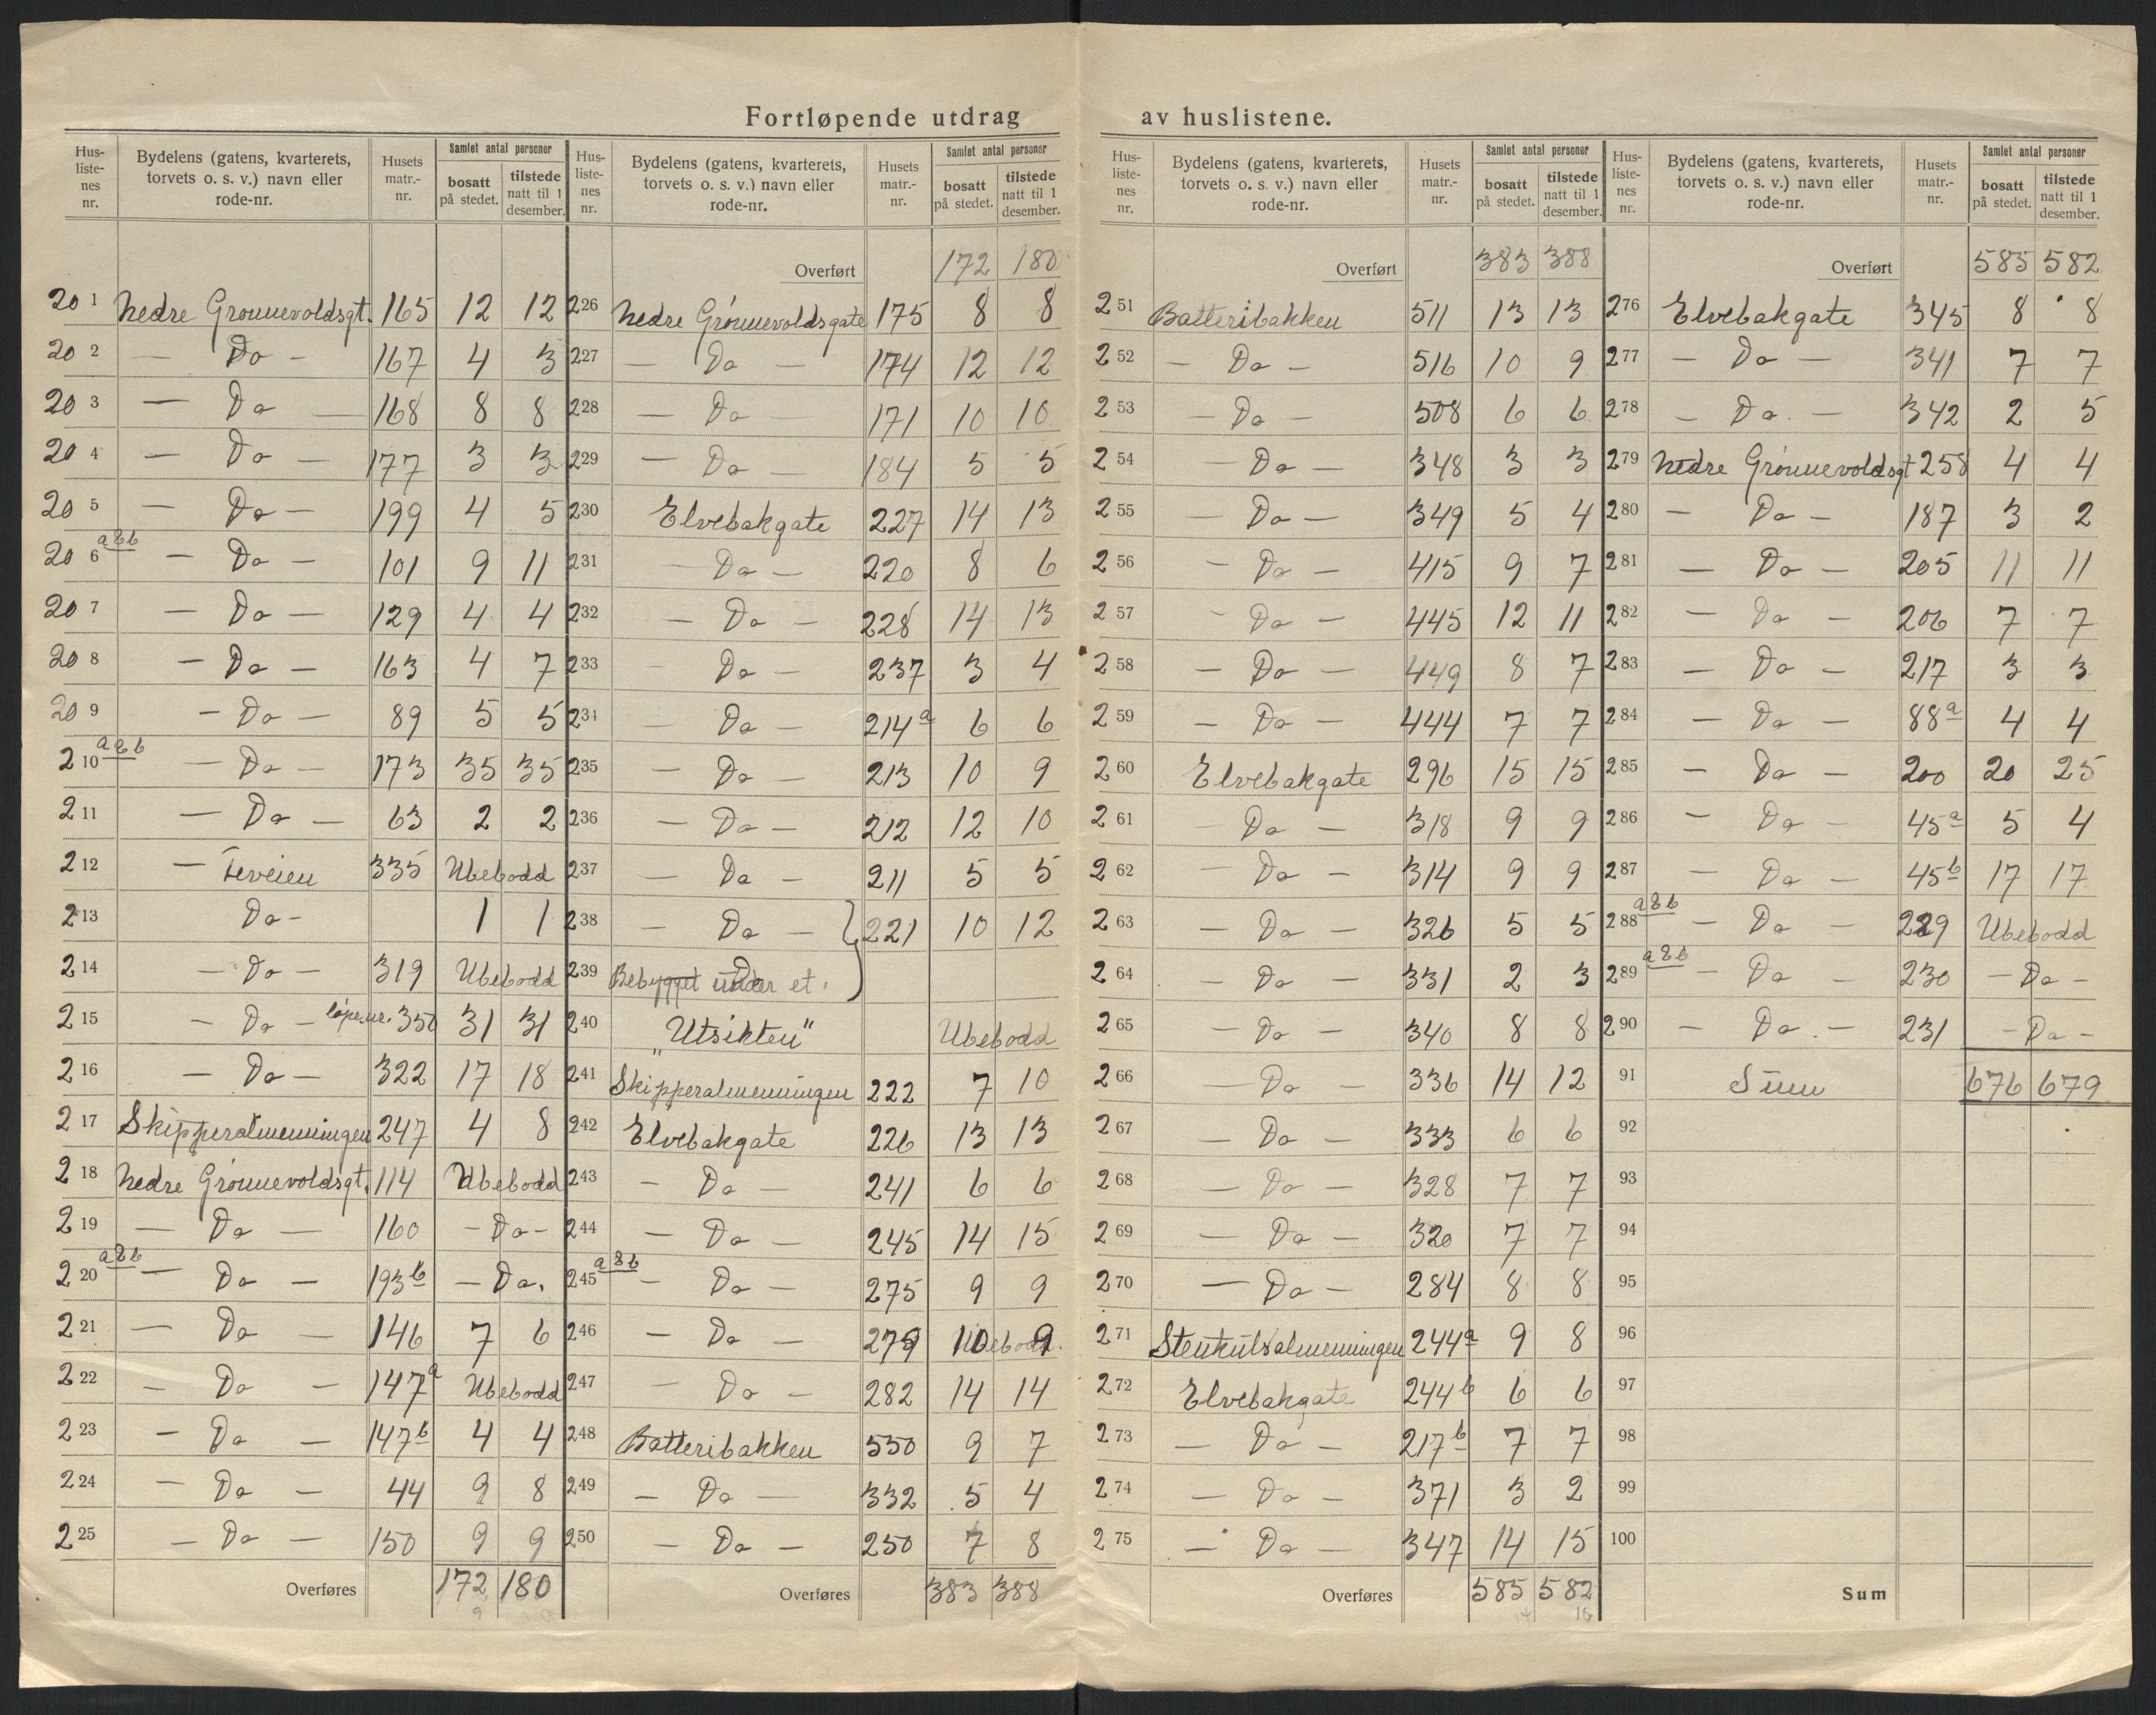 Fortløpende utdrag av huslistene.
Hus-listenes nr. | Bydelens (gatens, kvarterets, torvets o. s. v.) navn eller rode-nr. | Husets matr.-nr. | Samlet antal personer | bosatt på stedet. | tilstede natt til 1 desember.
201 Nedre Grønnevoldsgt. 165 12 12
202 — Do — 167 4 3
203 — Do — 168 8 8
204 — Do — 177 3 3
205 — Do — 199 4 5
206 a&b — Do — 101 9 11
207 — Do — 129 4 4
208 — Do — 163 4 7
209 — Do — 89 5 5
210 a&b — Do — 173 35 35
211 — Do — 63 2 2
212 — Feveien 335 Ubebodd
213 Do — 1 1
214 — Do — 319 Ubebodd
215 — Do — løpenr. 350 31 31
216 — Do — 322 17 18
217 Skipperalmenningen 247 4 8
218 Nedre Grønnevoldsgt. 114 Ubebodd
219 — Do — 160 — Do —
220 a&b — Do — 193b — Do.
221 — Do — 146 7 6
222 — Do — 147a Ubebodd
223 — Do — 147b 4 4
224 — Do — 44 9 8
225 — Do — 150 9 9
Overføres 172 180
Hus-listenes nr. | Bydelens (gatens, kvarterets, torvets o. s. v.) navn eller rode-nr. | Husets matr.-nr. | Samlet antal personer | bosatt på stedet. | tilstede natt til 1 desember.
Overført 172 180
226 Nedre Grønnevoldsgate 175 8 8
227 — Do — 174 12 12
228 — Do — 171 10 10
229 — Do — 184 5 5
230 Elvebakgate 227 14 13
231 — Do — 220 8 6
232 — Do — 228 14 13
233 — Do — 237 3 4
234 — Do — 214a 6 6
235 — Do — 213 10 9
236 — Do — 212 12 10
237 — Do — 211 5 5
238 — Do — 221 10 12
239 Do Bebygget under et.
240 "Utsikten" Ubebodd
241 Skipperalmenningen 222 7 10
242 Elvebakgate 226 13 13
243 — Do — 241 6 6
244 — Do — 245 14 15
245 a&b — Do — 275 9 9
246 — Do — 279 10 9
247 — Do — 282 14 14
248 Batteribakken 550 9 7
249 — Do — 332 5 4
250 — Do — 250 7 8
Overføres 383 388
Hus-listenes nr. | Bydelens (gatens, kvarterets, torvets o. s. v.) navn eller rode-nr. | Husets matr.-nr. | Samlet antal personer | bosatt på stedet. | tilstede natt til 1 desember.
Overført 383 388
251 Batteribakken 511 13 13
252 — Do — 516 10 9
253 — Do — 508 6 6
254 — Do — 348 3 3
255 — Do — 349 5 4
256 — Do — 415 9 7
257 — Do — 445 12 11
258 — Do — 449 8 7
259 — Do — 444 7 7
260 Elvebakgate 296 15 15
261 — Do — 318 9 9
262 — Do — 314 9 9
263 — Do — 326 5 5
264 — Do — 331 2 3
265 — Do — 340 8 8
266 — Do — 336 14 12
267 — Do — 333 6 6
268 — Do — 328 7 7
269 — Do — 320 7 7
270 — Do — 284 8 8
271 Stenkulsalmenningen 244a 9 8
272 Elvebakgate 244b 6 6
273 — Do — 217b 7 7
274 — Do — 371 3 2
275 — Do — 347 14 15
Overføres 585 582
Hus-listenes nr. | Bydelens (gatens, kvarterets, torvets o. s. v.) navn eller rode-nr. | Husets matr.-nr. | Samlet antal personer | bosatt på stedet. | tilstede natt til 1 desember.
Overført 585 582
276 Elvebakgate 345 8 8
277 — Do — 341 7 7
278 — Do. — 342 2 5
279 Nedre Grønnevoldsgt 258 4 4
280 — Do — 187 3 2
281 — Do — 205 11 11
282 — Do — 206 7 7
283 — Do — 217 3 3
284 — Do — 88a 4 4
285 — Do — 200 20 25
286 — Do — 45a 5 4
287 — Do — 45b 17 17
288 a&b — Do — 229 Ubebodd
289 a&b — Do — 230 — Do —
290 — Do. — 231 — Do —
91 Sum 676 679
92
93
94
95
96
97
98
99
100
Sum